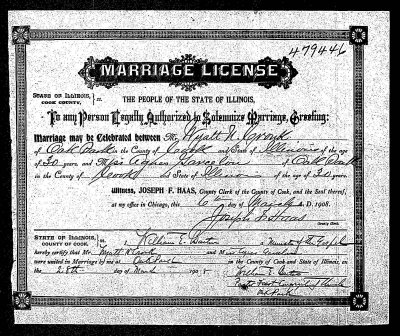 479446
MARRIAGE LICENSE
STATE OF ILLINOIS, COOK COUNTY, } ss.
THE PEOPLE OF THE STATE OF ILLINOIS,
To any Person Legally Authorized to Solemnize Marriage, Greeting:
Marriage may be Celebrated between Mr.
of Oak Park in the County of Cook and State of Illinois of the age
of 30 years, and Miss of Oak Park
in the County of Cook & State of Illinois of the age of years.
Witness, JOSEPH F. HAAS, County Clerk of the County of Cook, and the Seal thereof,
at my office in Chicago, this A.D. 1908.
Joseph F. Haas
County Clerk.
STATE OF ILLINOIS, COUNTY OF COOK. } ss. William E. Barton a Minister of the Gospel
hereby certify that Mr. and Miss
were united in Marriage by me at Oak Park in the County of Cook and State of Illinois, on
the 28th day of March 190
William E. Barton
First Congregational Church
Oak Park